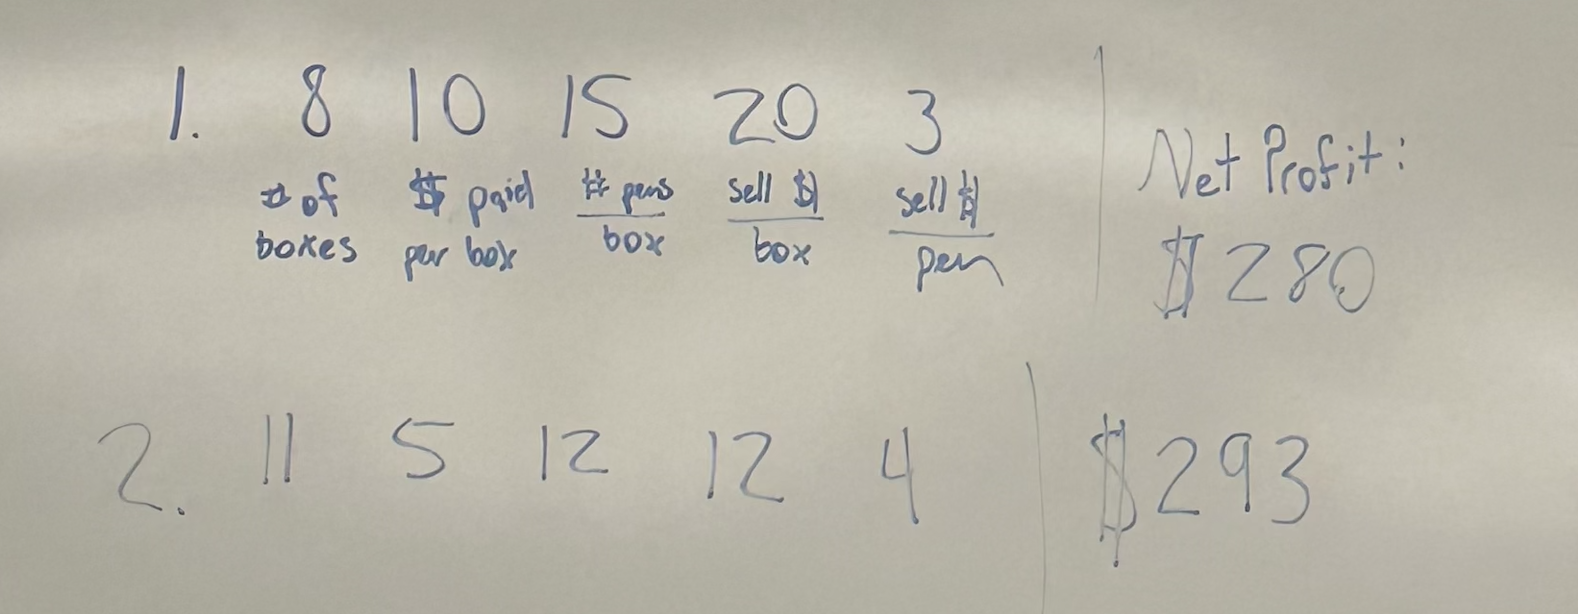 1. 8 10 15 20 3
# of boxes
$ paid per box
# pens / box
sell $ / box
sell $ / pen
Net Profit:
$280
2. 11 5 12 12 4
$293